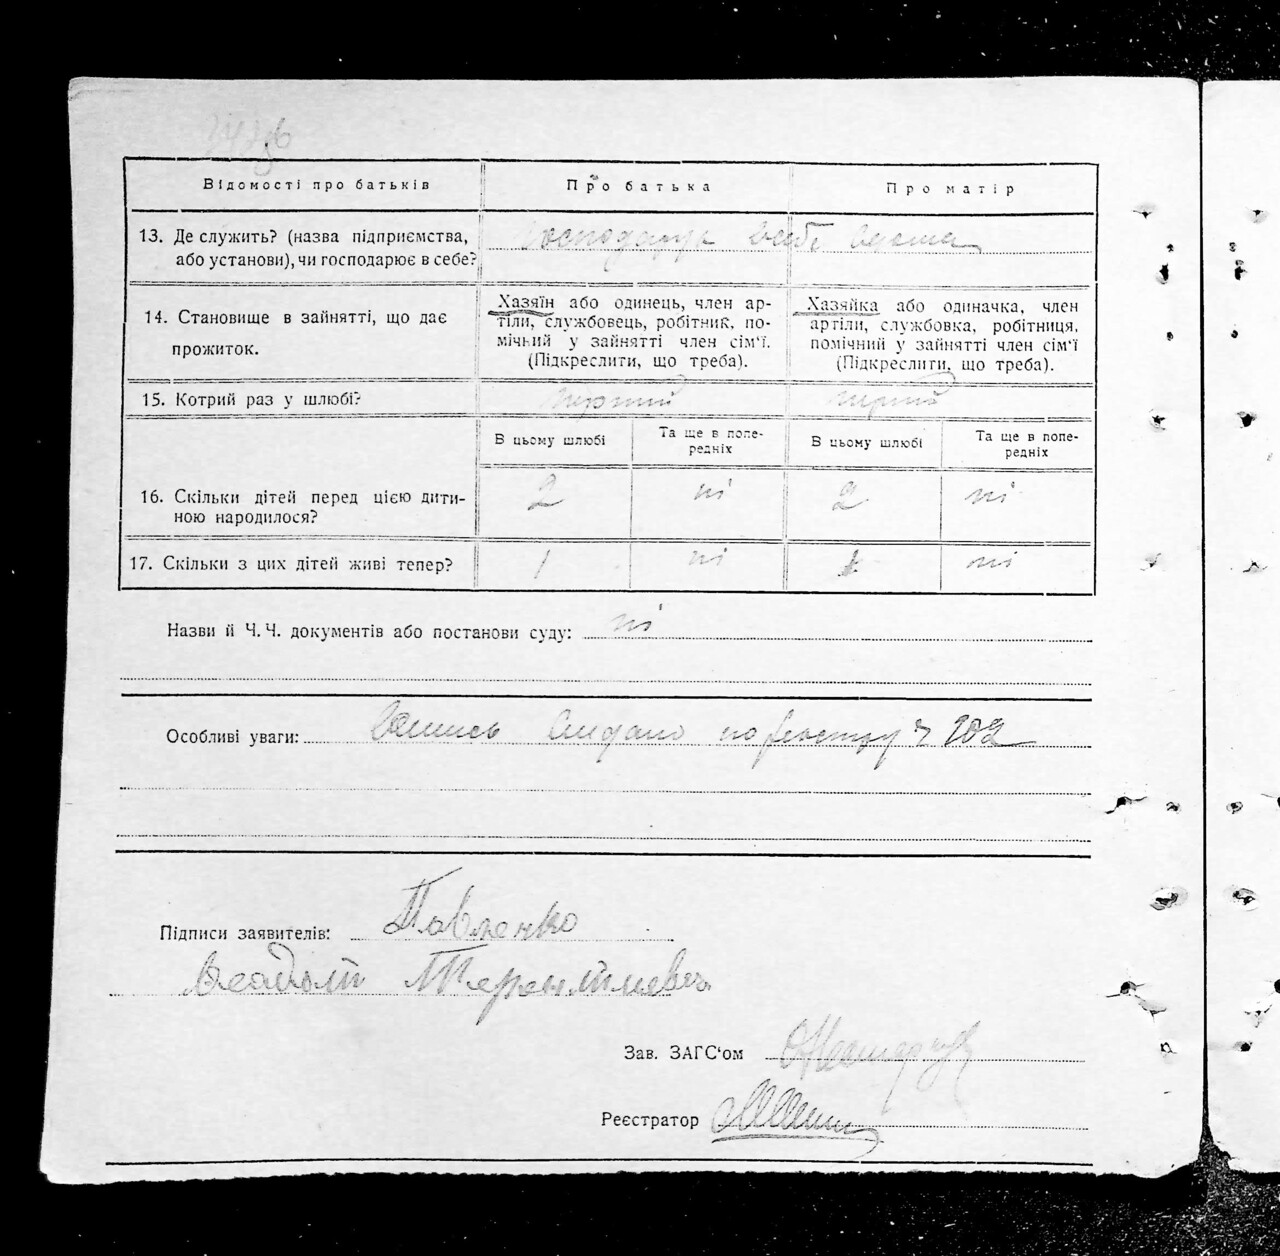 Відомості про батьків
Про батька
Про матір
13. Де служить? (назва підприємства,
або установи), чи господарює в себе?
господарує в себе
14. Становище в занятті, що дає
прожиток.
Хазяїн або одинець, член ар-
тіли, службовець, робітник, по-
мічний у зайнятті член сім'ї.
(Підкреслити, що треба).
Хазяйка або одиначка, член
артіли, службовка, робітниця,
помічний у зайнятті член сім'ї
(Підкреслити, що треба).
15. Котрий раз у шлюбі?
перший
перший
В цьому шлюбі
Та ще в попе-
редніх
В цьому шлюбі
Та ще в попе-
редніх
16. Скільки дітей перед цією дити-
ною народилося?
2
ні
2
ні
17. Скільки з цих дітей живі тепер?
1
ні
1
ні
Назви й Ч. Ч. документів або постанови суду: ні
Особливі уваги: по реєстру ч 202
Підписи заявителів: Павленко
Терентиевич
Зав. ЗАГС'ом
Реєстратор